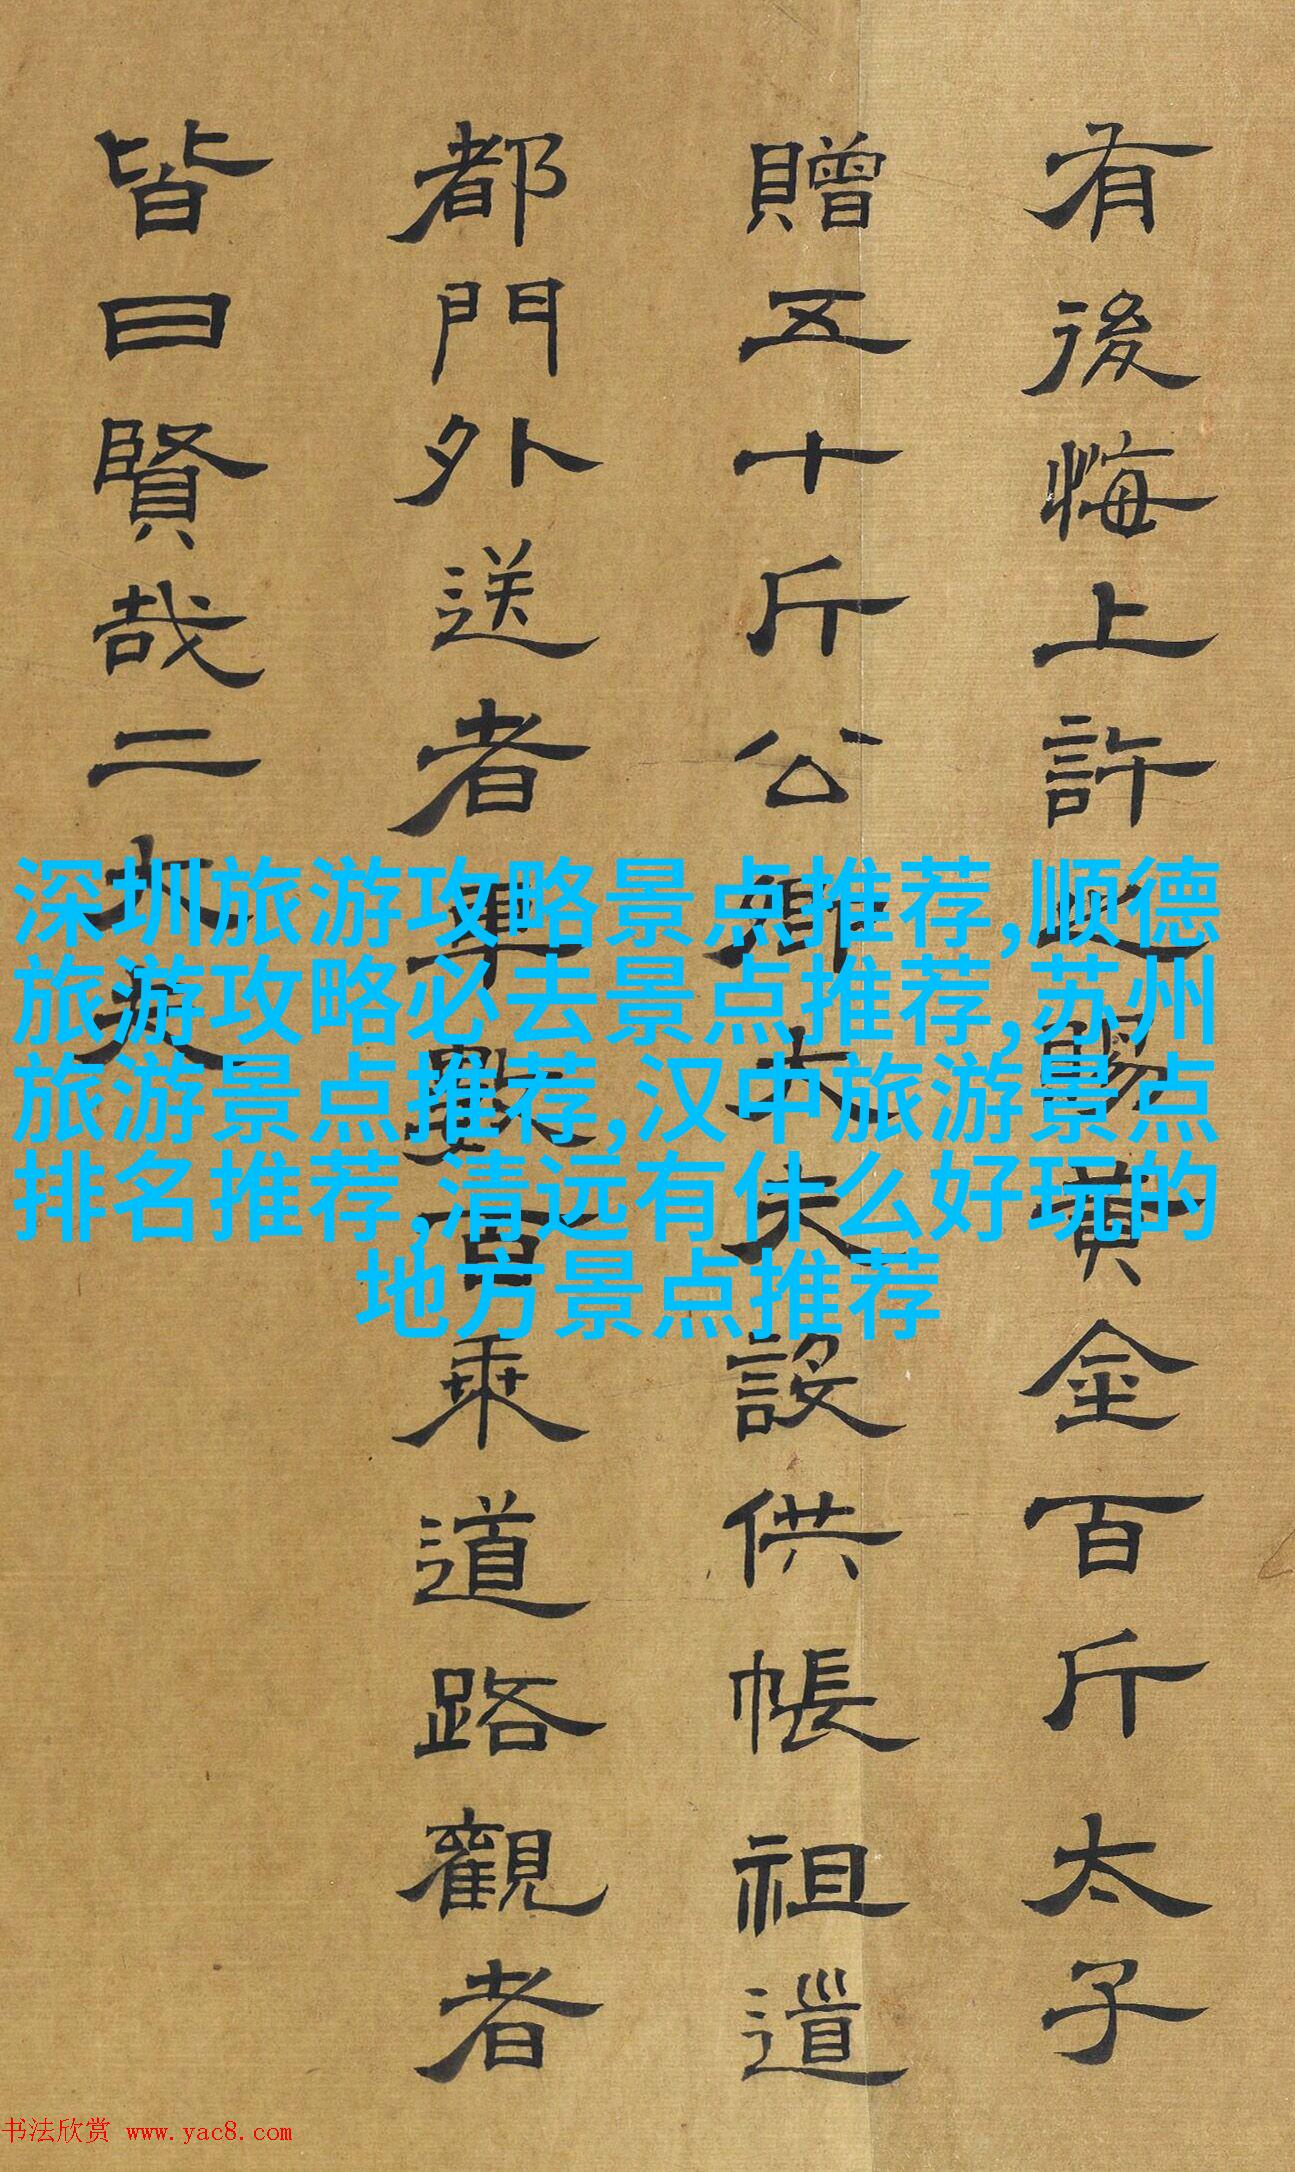 有後悔上許之賜黃金百斤太子
贈五十斤公卿大夫設供帳祖道
都門外送者車數百乘道路觀者
皆曰賢哉二大夫
深圳旅游攻略景点推荐,顺德
旅游攻略必去景点推荐,苏州
旅游景点推荐,汉中旅游景点
排名推荐,清远有什么好玩的
地方景点推荐
书法欣赏 www.yac8.com